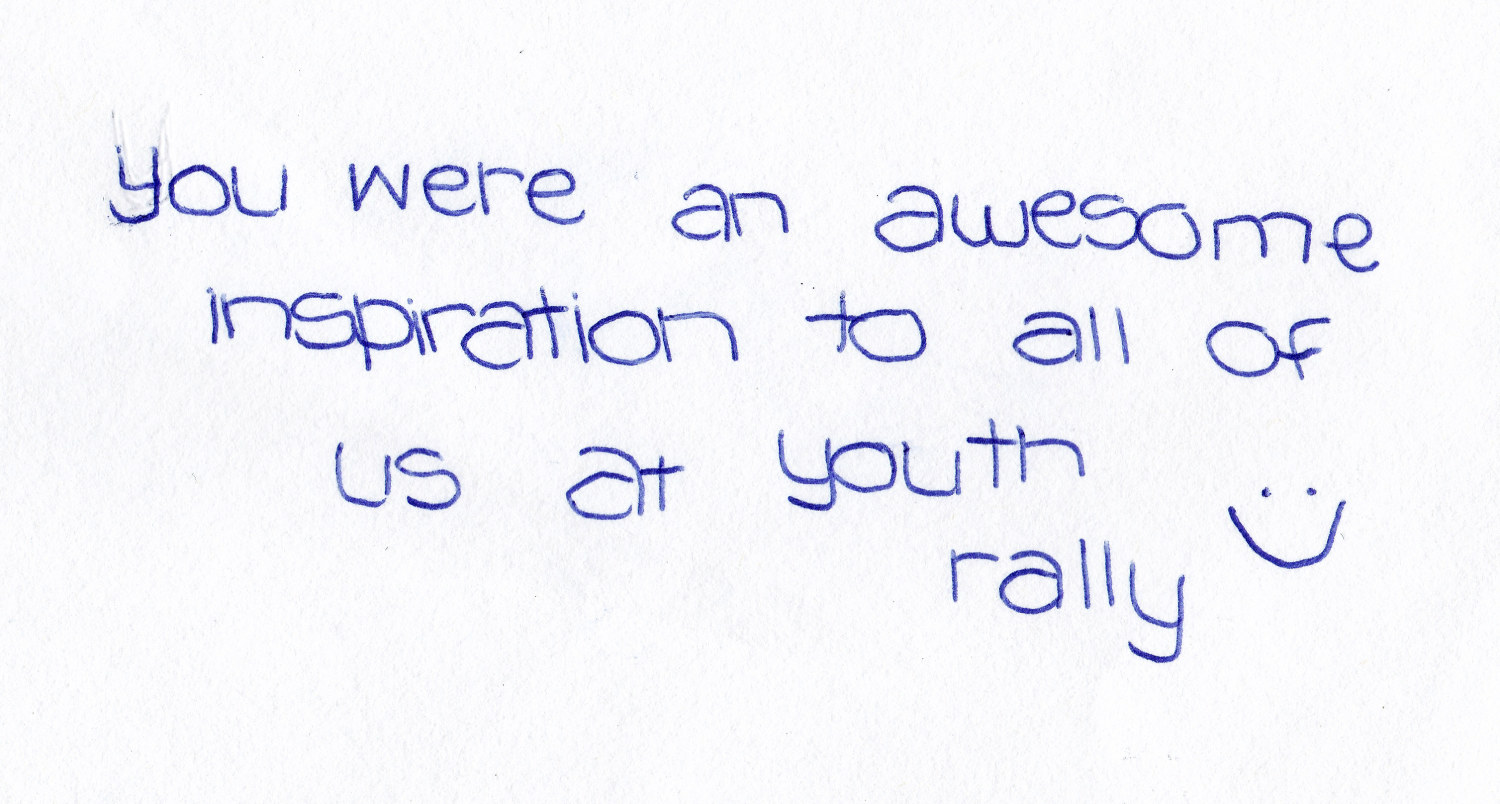 you were an awesome
inspiration to all of
us at youth
rally